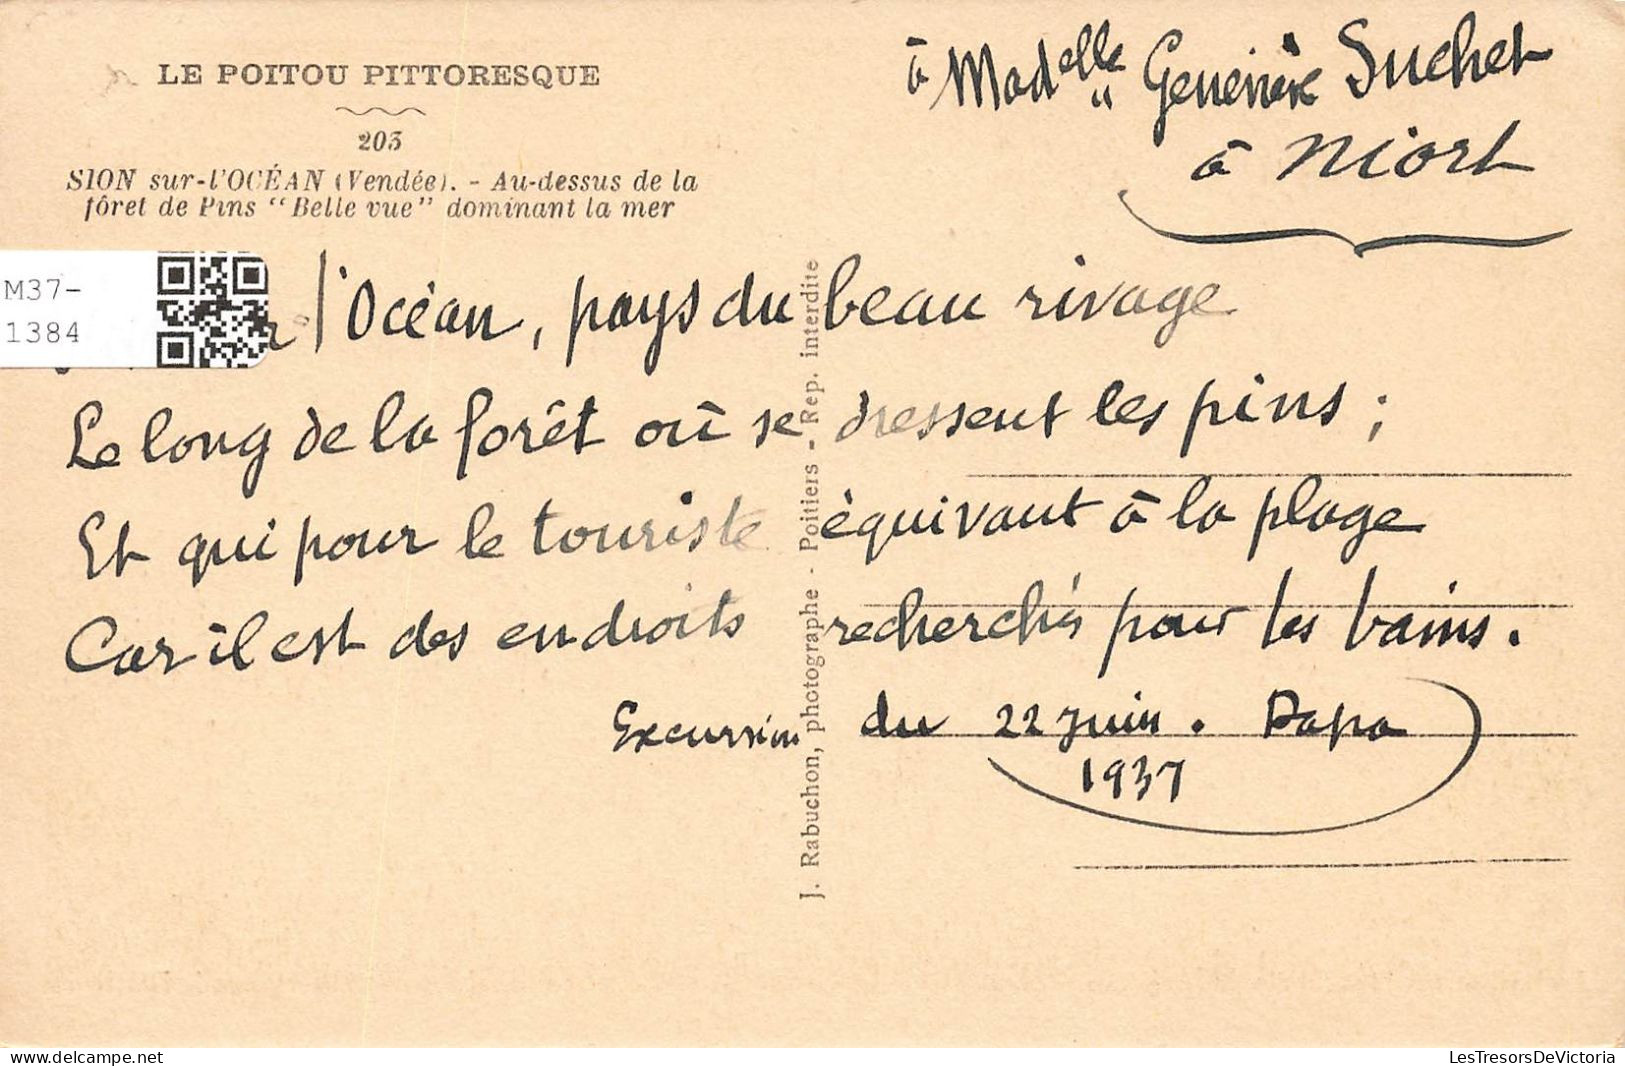 LE POITOU PITTORESQUE
203
SION sur-l'OCÉAN (Vendée). - Au-dessus de la
fôret de Pins "Belle vue" dominant la mer
à Madelle Geneviève Suchet
à Niort
M37-
1384
l'Océan, pays du beau rivage
Le long de la forêt où se dressent les pins ;
Et qui pour le touriste équivaut à la plage
Car il est des endroits recherchés pour les bains.
Excursion du 22 juin. Papa
1937
J. Rabuchon, photographe - Poitiers - Rep. interdite
LesTresorsDeVictoria pour www.delcampe.net
LesTresorsDeVictoria